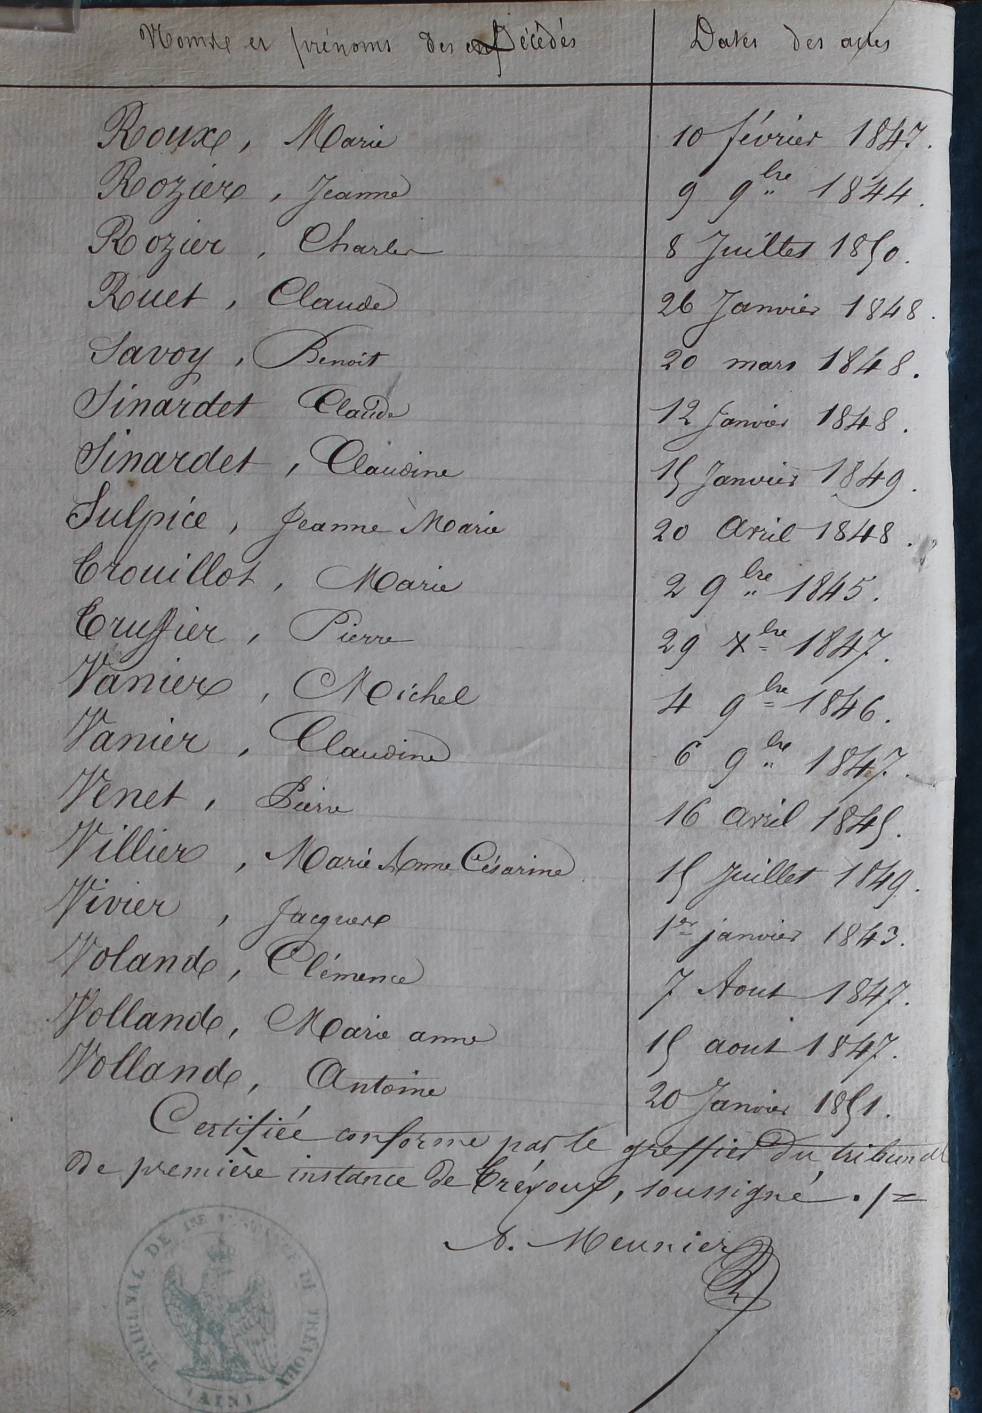 Noms et prénoms des Décédés Dates des actes
Roux, Marie 10 février 1847.
Rozier, Jeanne 9 9bre 1844.
Rozier, Charles 8 Juillet 1850.
Ruet, Claude 26 Janvier 1848.
Savoy, Benoit 20 mars 1848.
Sinardet Claude 12 Janvier 1848.
Sinardet, Claudine 15 Janvier 1849.
Sulpice, Jeanne Marie 20 Avril 1848.
Trouillot, Marie 2 9bre 1845.
Truffier, Pierre 29 Xbre 1847.
Vanier, Michel 4 9bre 1846.
Vanier, Claudine 6 9bre 1847.
Venet, Pierre 16 Avril 1845.
Villier, Marie Anne Césarine 15 Juillet 1849.
Vivier, Jacques 1er janvier 1843.
Voland, Clémence 7 Aout 1847.
Volland, Marie anne 15 aout 1847.
Volland, Antoine 20 Janvier 1851.
Certifiée conforme par le greffier du tribunal
de première instance de Trévoux, soussigné ./=
A. Meunier
TRIBUNAL DE 1RE INSTANCE DE TRÉVOUX
(AIN)